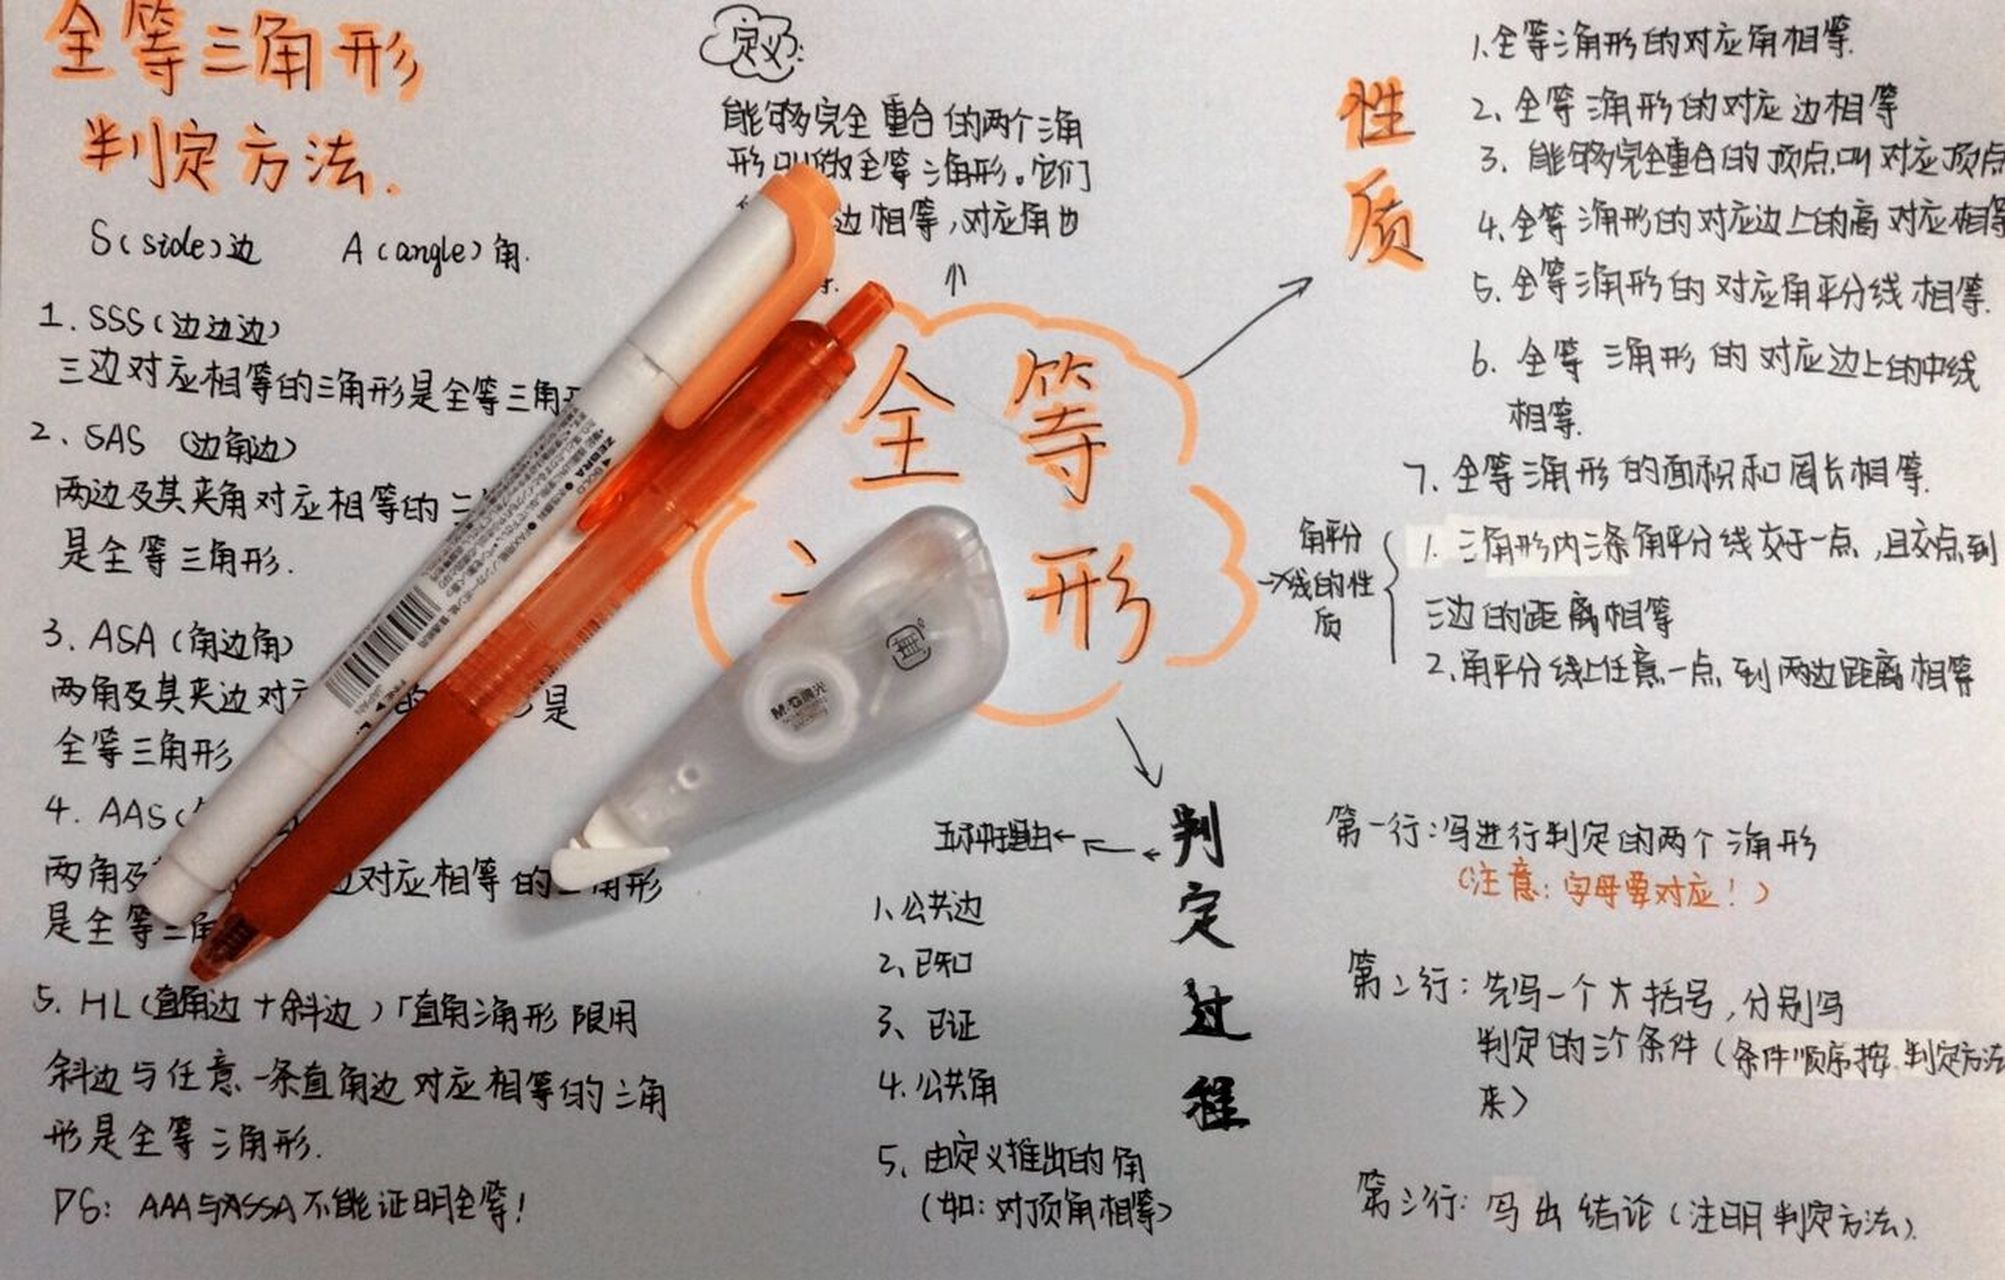 全等三角形
判定方法.
S(side)边 A(angle)角.
1. SSS(边边边)
三边对应相等的三角形是全等三角
2、SAS (边角边)
两边及其夹角对应相等的
是全等三角形.
3. ASA(角边角)
两角及其夹边对 的 是
全等三角形
4. AAS(
两角及 边对应相等的三角形
是全等三角
5. HL(直角边+斜边)「直角三角形 限用
斜边与任意一条直角边对应相等的三角
形是全等三角形.
PS: AAA与ASSA不能证明全等!
定义:
能够完全重合的两个三角
形叫做全等三角形。它们
边相等,对应角也
等.
全等
三 形
ZEBRA
M&G晨光
性质
1.全等三角形的对应角相等.
2.全等三角形的对应边相等
3.能够完全重合的顶点叫对应顶点
4.全等三角形的对应边上的高对应相等
5.全等三角形的对应角平分线相等.
6.全等三角形的对应边上的中线
相等.
7.全等三角形的面积和周长相等.
角平分
线的性
质
1.三角形内三条角平分线交于一点,且交点到
三边的距离相等
2.角平分线上任意一点到两边距离相等
判定过程
五种理由
1、公共边
2、已知
3、已证
4.公共角
5、由定义推出的角
(如:对顶角相等)
第一行:写进行判定的两个三角形
(注意:字母要对应!)
第二行:先写一个大括号,分别写
判定的三个条件(条件顺序按判定方法
来)
第三行:写出结论(注明判定方法).